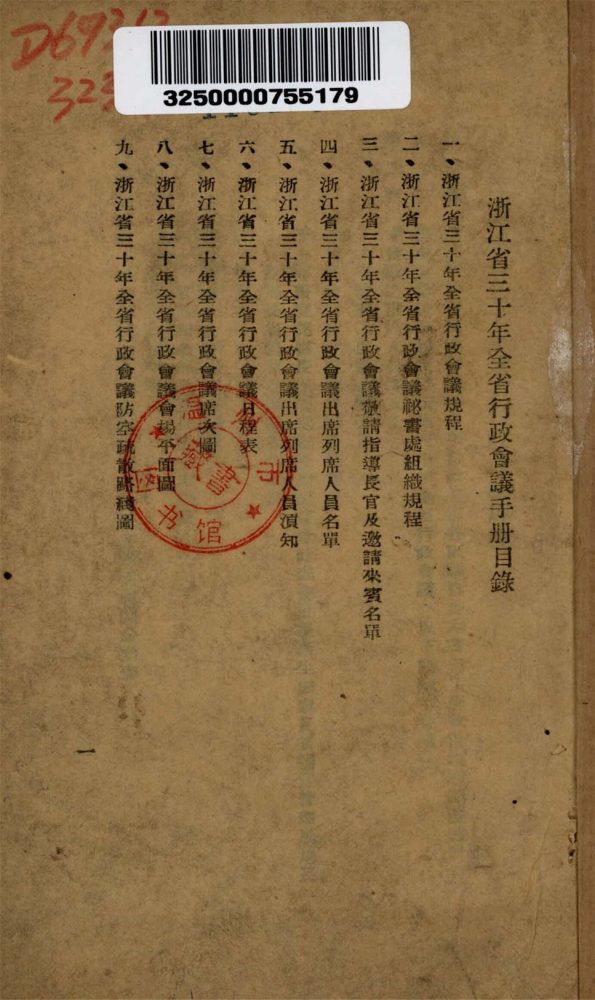 D693.62
323
3250000755179
浙江省三十年全省行政會議手册目錄
一、浙江省三十年全省行政會議規程
二、浙江省三十年全省行政會議祕書處組織規程
三、浙江省三十年全省行政會議敬請指導長官及邀請來賓名單
四、浙江省三十年全省行政會議出席列席人員名單
五、浙江省三十年全省行政會議出席列席人員須知
六、浙江省三十年全省行政會議日程表
七、浙江省三十年全省行政會議席次圖
八、浙江省三十年全省行政會議會場平面圖
九、浙江省三十年全省行政會議防空疏散路綫圖
温州市图书馆
藏書
一